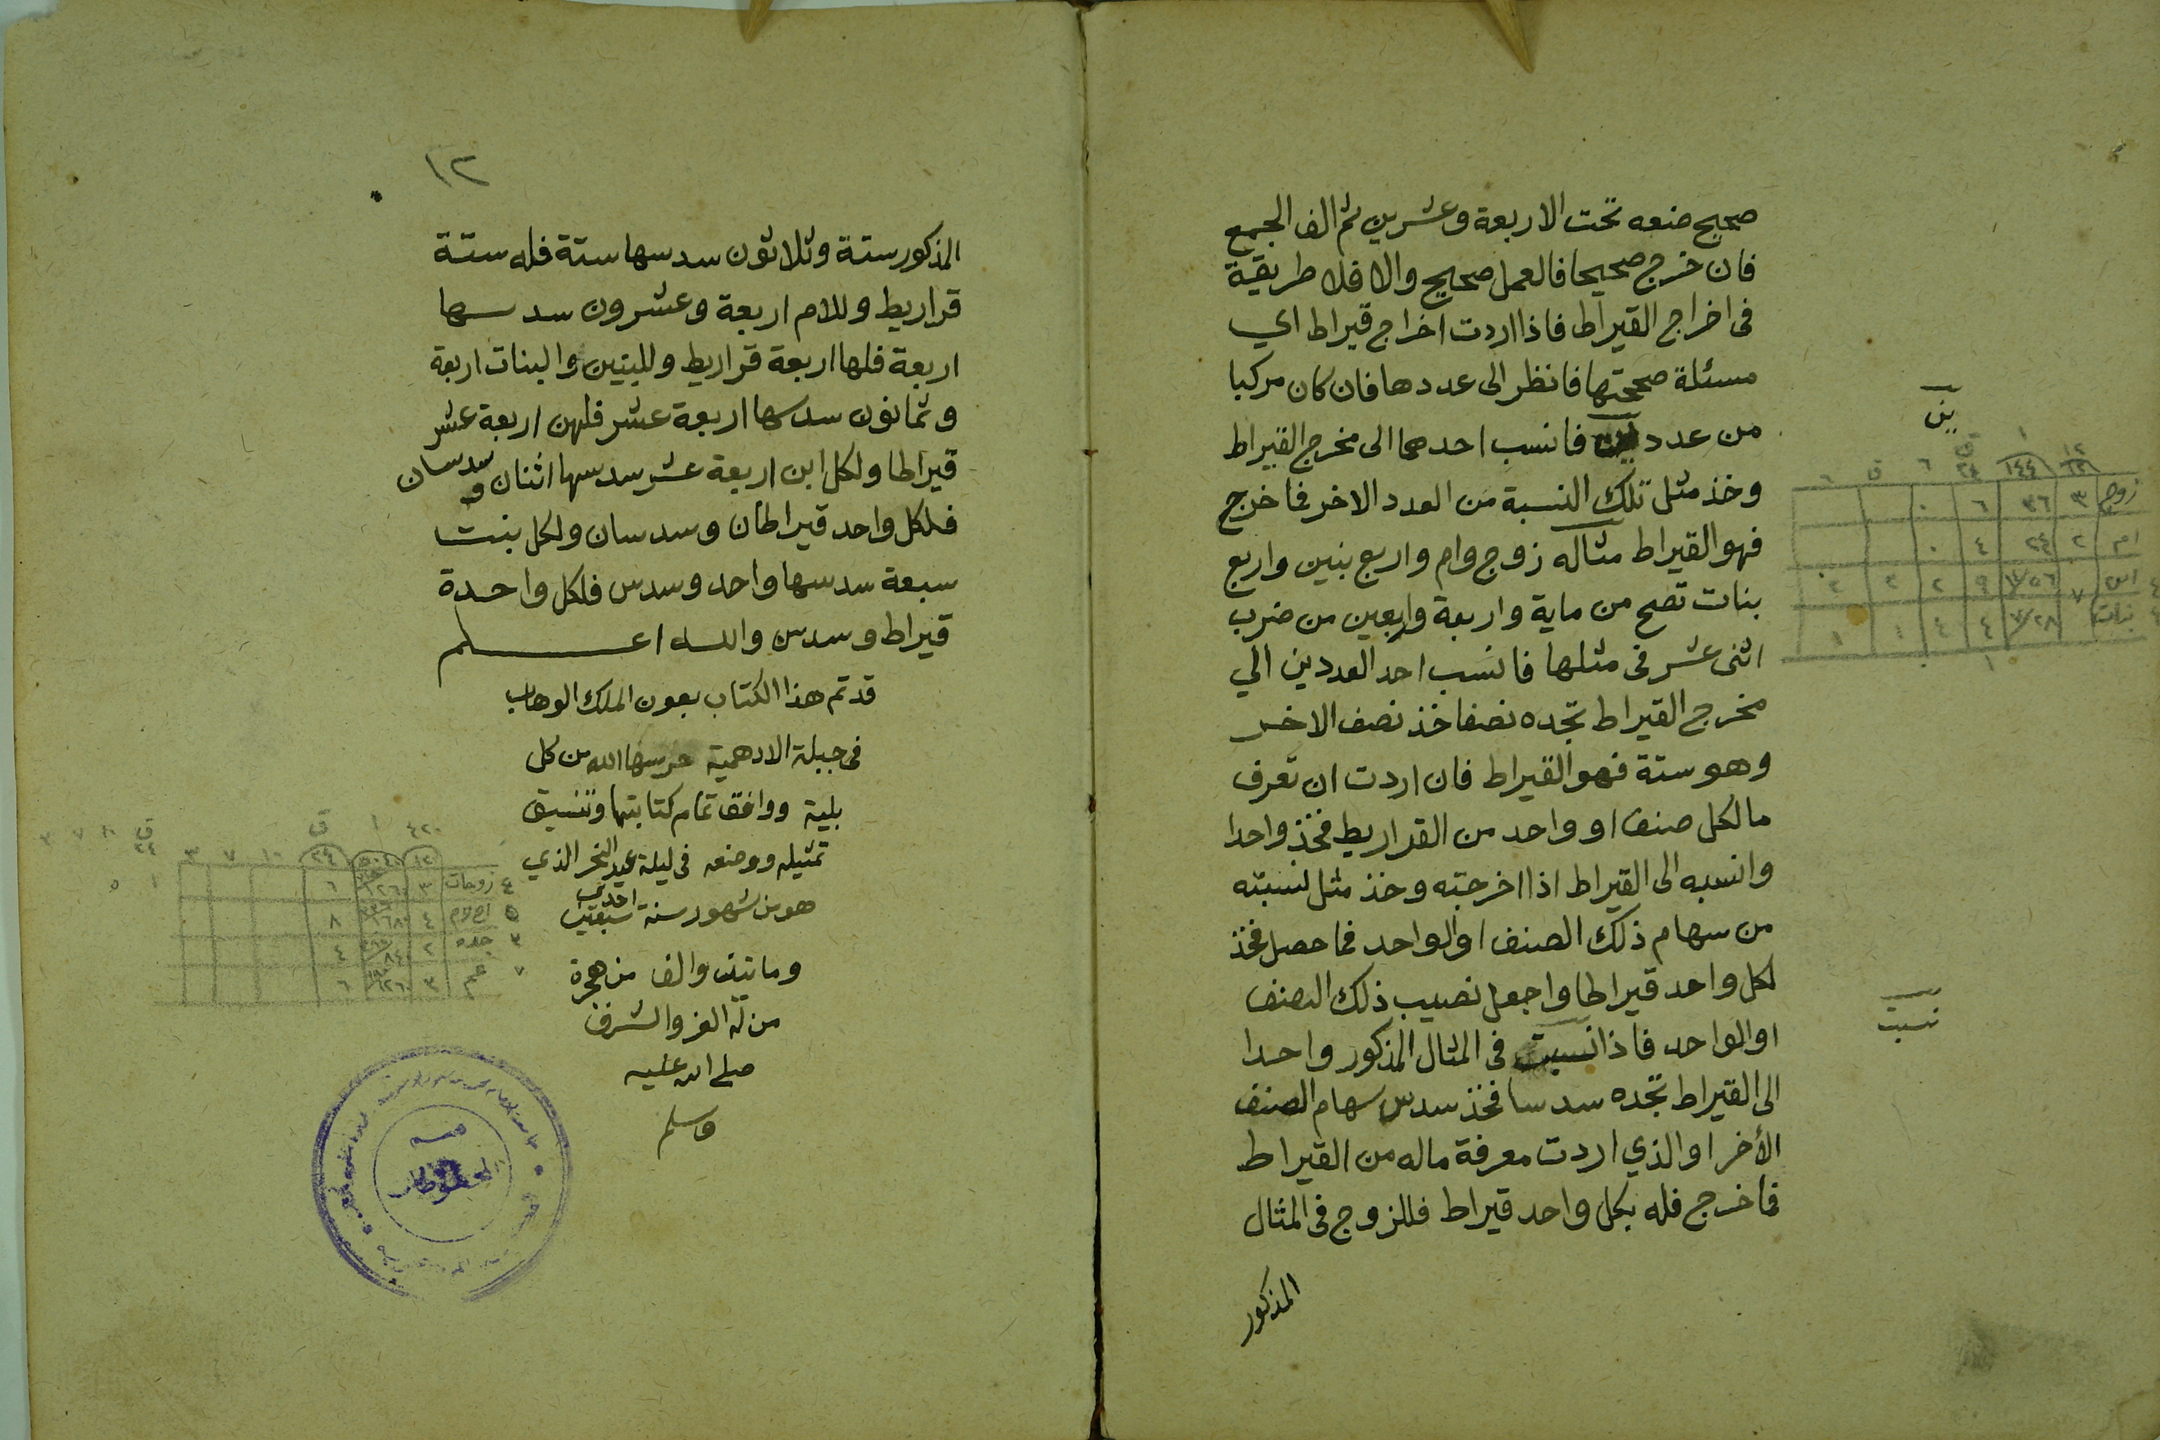 صحيح ضعه تحت الاربعة وعشرين ثم الف الجمع
فان خرج صحيحا فالعمل صحيح والا فلا طريقة
فى اخراج القيراط فاذا اردت اخراج قيراط اي
مسئلة صححتها فانظر الى عددها فان كان مركبا
من عدد فانسب احدهما الى مخرج القيراط
وخذ مثل تلك النسبة من العدد الاخر فما خرج
فهو القيراط مثاله زوج وام واربع بنين واربع
بنات تصح من ماية واربعة واربعين من ضرب
اثنى عشر فى مثلها فانسب احد العددين الي
مخرج القيراط تجده نصفا خذ نصف الاخر
وهو ستة فهو القيراط فان اردت ان تعرف
ما لكل صنف او واحد من القراريط فخذ واحدا
وانسبه الى القيراط اذا اخرجته وخذ مثل نسبته
من سهام ذلك الصنف او الواحد فما حصل فخذ
لكل واحد قيراطا واجعل نصيب ذلك الصنف
او الواحد فاذا نسبت فى المثال المذكور واحدا
الى القيراط تجده سدسا فخذ سدس سهام الصنف
الأخر او الذي اردت معرفة ماله من القيراط
فما خرج فله بكل واحد قيراط فللزوج فى المثال
المذكور
ين
نسبت
١٢
١٤٤
٢٤ ٦ ق ٦
زوج ٣ ٣٦ ٦ ٠
ام ٢ ٢٤ ٤ ٠
٧ ٥٦ ٩ ٢ ٢ ٢
بنات ٢٨ ٤ ٤
١٢
المذكور ستة وثلاثون سدسها ستة فله ستة
قراريط وللام اربعة وعشرون سدسها
اربعة فلها اربعة قراريط وللبنين والبنات اربعة
وثمانون سدسها اربعة عشر فلهن اربعة عشر
قيراطا ولكل ابن اربعة عشر سدسها اثنان وسدسان
فلكل واحد قيراطان وسدسان ولكل بنت
سبعة سدسها واحد وسدس فلكل واحدة
قيراط وسدس والله اعلم
قد تم هذا الكتاب بعون الملك الوهاب
فى جبلة الادهمية حرسها الله من كل
بلية ووافق تمام كتابتها وتنسيق
تمثيله ووضعه فى ليلة عيد النحر الذي
هو من شهور سنة احدى سبعين
ومائتين والف من هجرة
من له العز والشرف
صلى الله عليه
وسلم
٤٢٠ ١ ق
١٢ ٥٠٤ ٢٤ ١٠ ٧ ٣
٤ زوجات ٣ ١٢٦٠ ٦
٥ ٤ ١٦٨٠ ٨
٣ جده ٢ ٨٤٠ ٤
٧ عم ٣ ١٢٦٠ ٦
قسم
المخطوطات